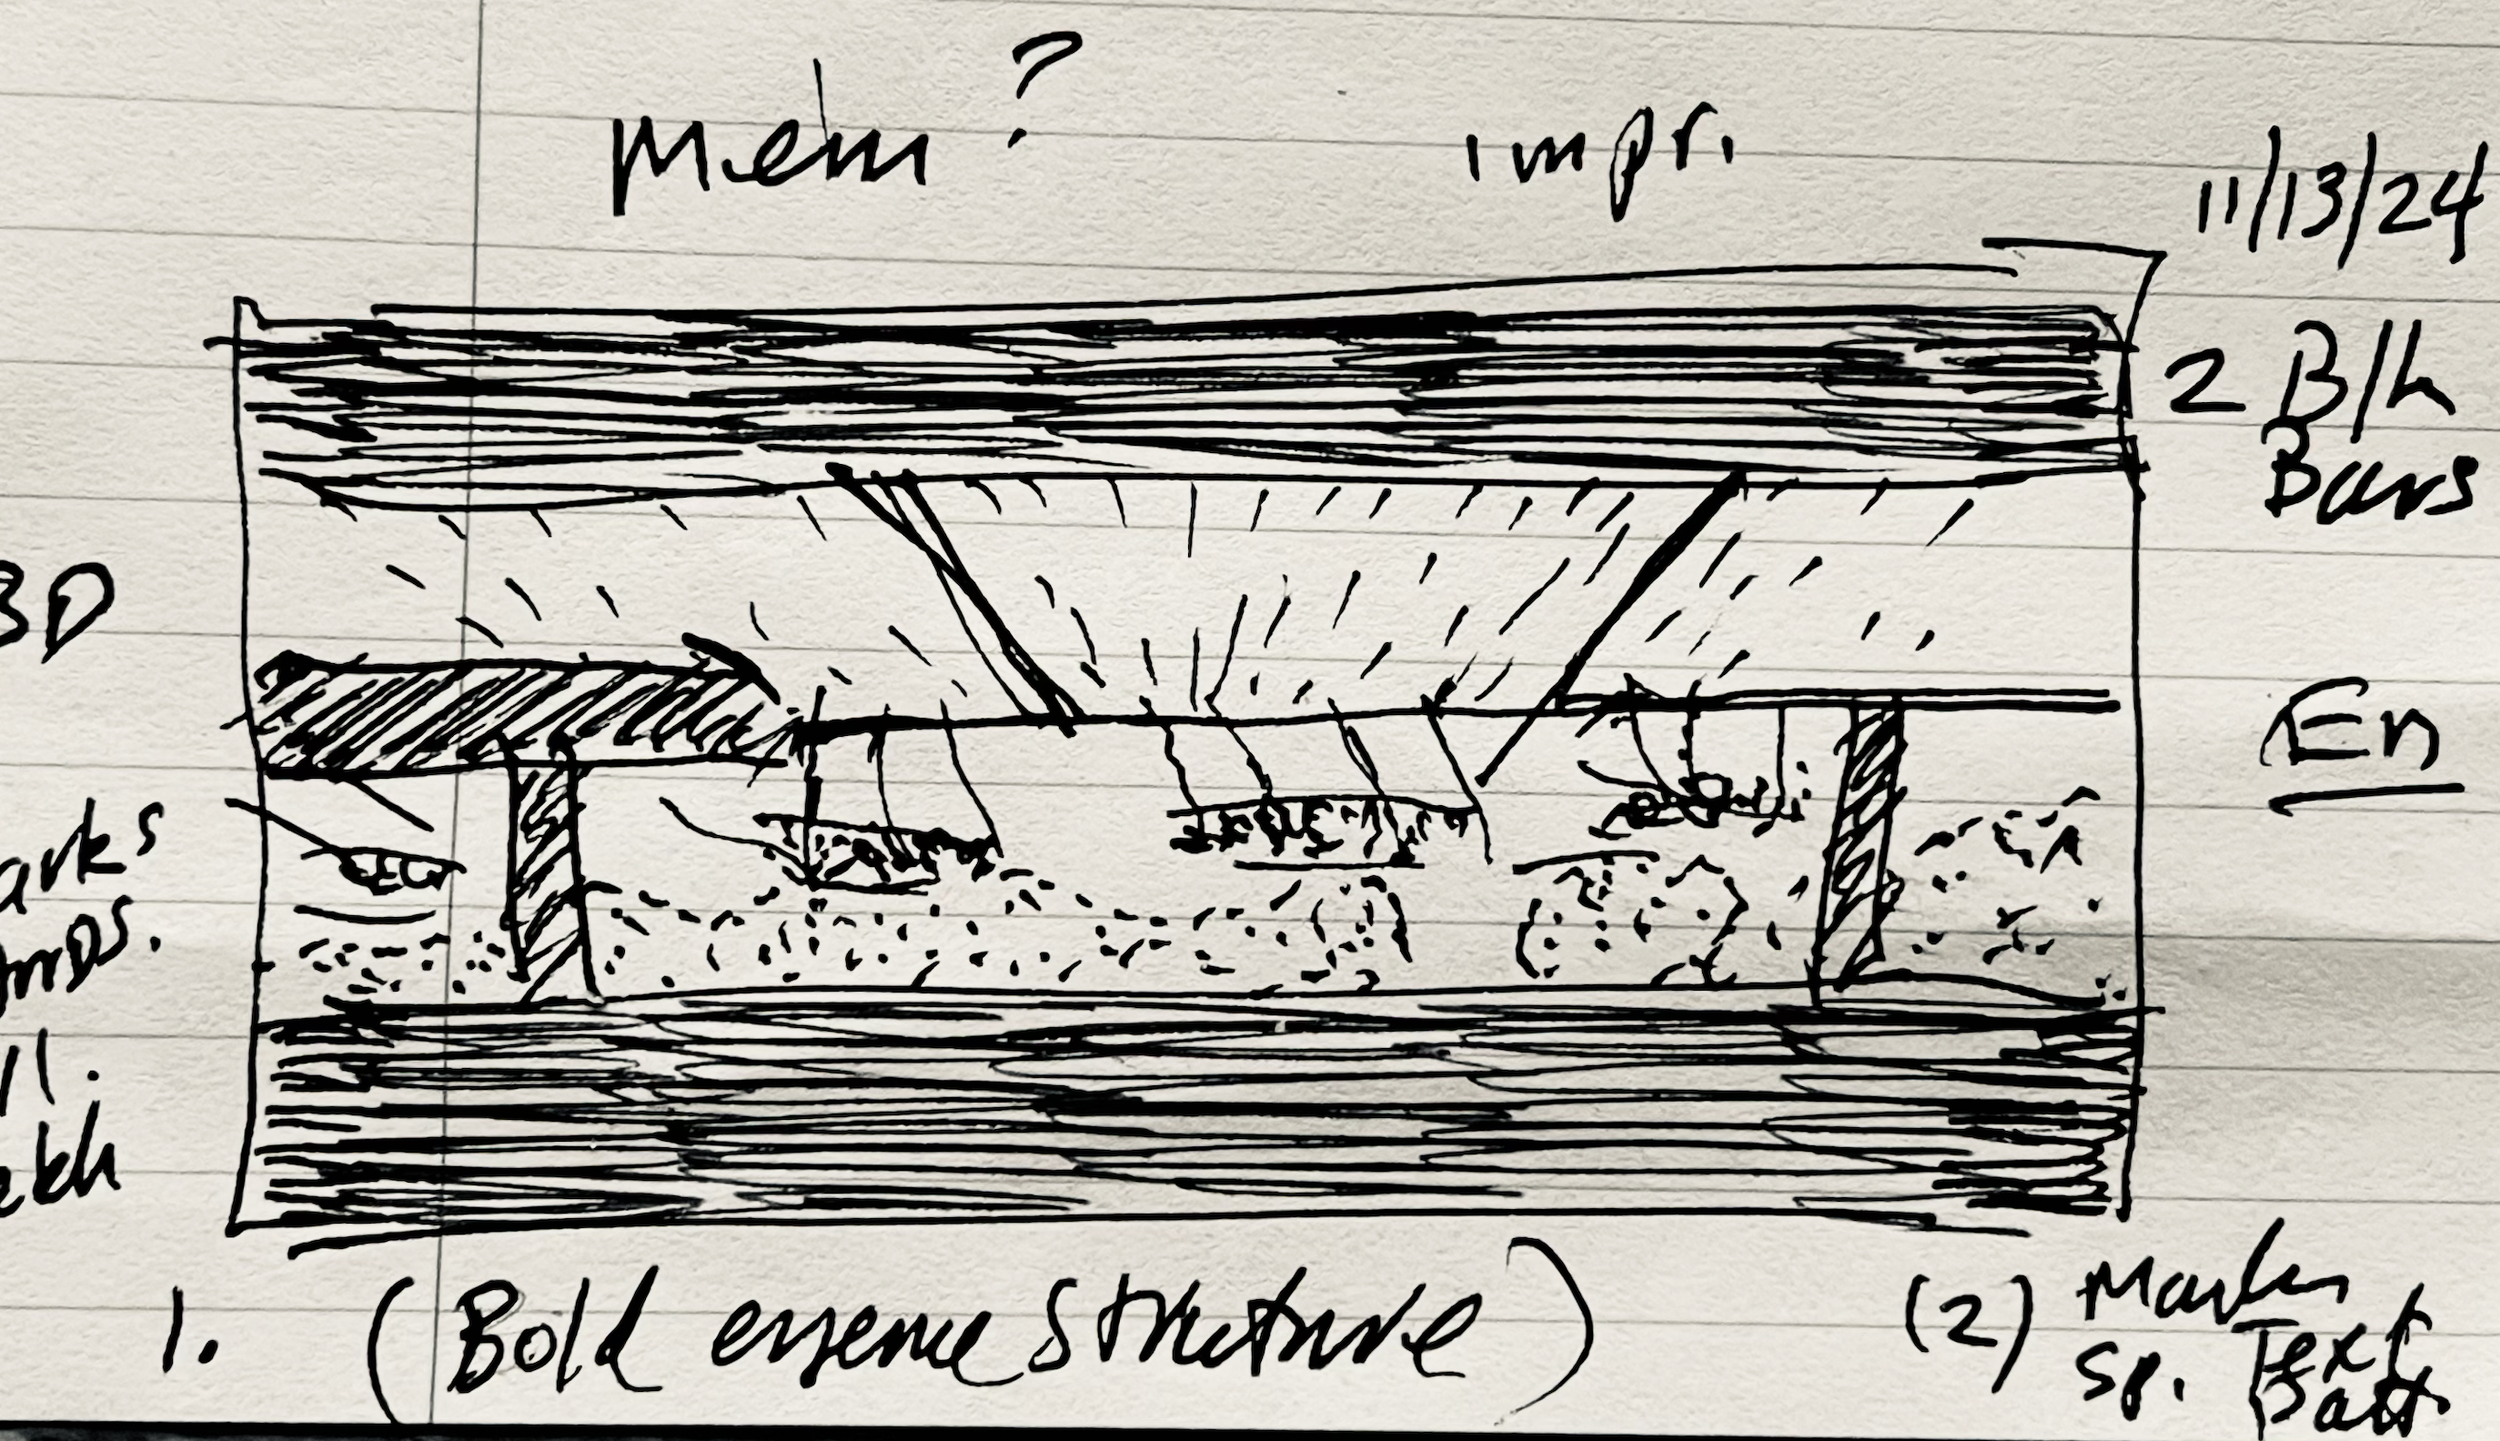 Mem?
impr.
11/13/24
2 Blk
Bars
3D
En
arks
1. (Bold essence Structure)
(2) Marks
sp. Text
Patt.